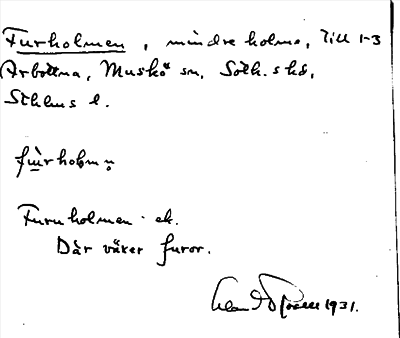 Furholmen, mindre holme, Till 1-3
Arbottna, Muskö sn, Soth. shd,
Sthlms l.
fùrholm̥n̥
Furuholmen ek.
Där växer furor.
1931.